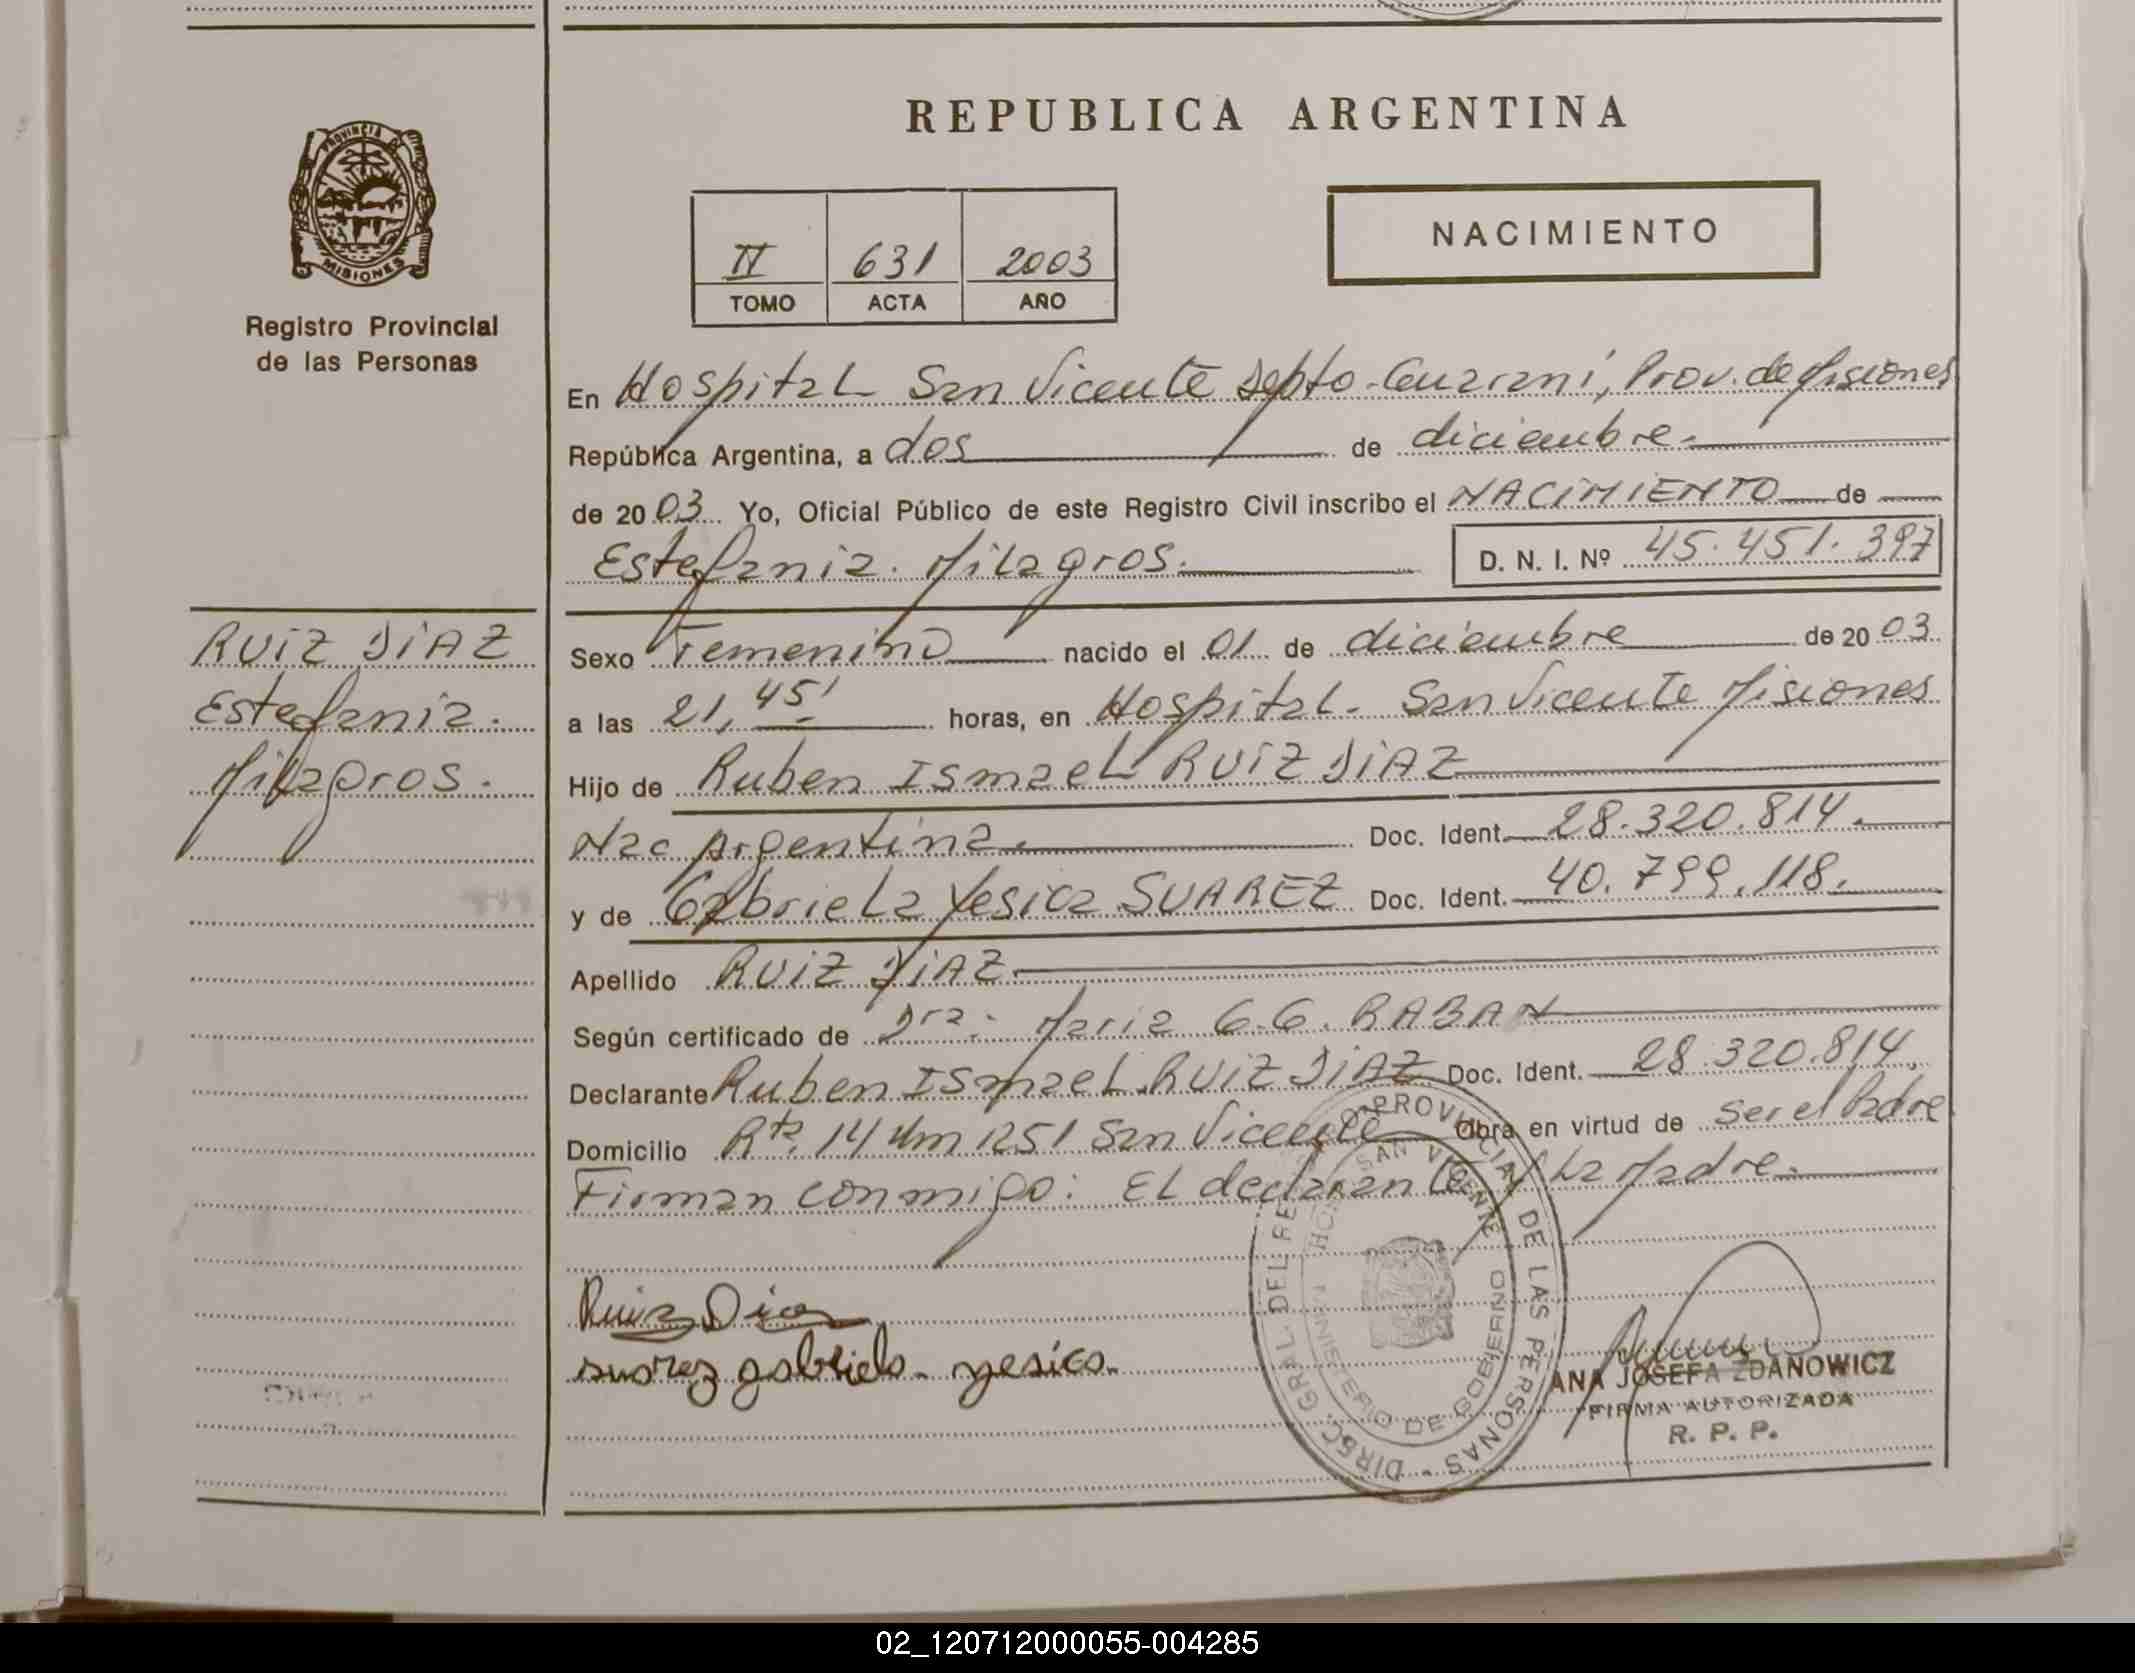 REPUBLICA ARGENTINA
PROVINCIA DE
MISIONES
Registro Provincial
de las Personas
II 631 2003
TOMO ACTA AÑO
NACIMIENTO
En Hospital San Vicente Depto-Guarani, Prov. de Misiones
República Argentina, a dos de diciembre.
de 2003 Yo, Oficial Público de este Registro Civil inscribo el NACIMIENTO de
Estefania. Milagros. D. N. I. Nº 45.451.397
RUIZ DIAZ
Estefania.
Milagros.
Sexo Femenino nacido el 01 de diciembre de 2003
a las 21,45' horas, en Hospital. San Vicente Misiones
Hijo de Ruben Ismael RUIZ DIAZ
Nac Argentina. Doc. Ident. 28.320.814.
y de Gabriela Yesica SUAREZ Doc. Ident. 40.799.118.
Apellido RUIZ DIAZ
Según certificado de Dra. Maria G.G. RABAN
Declarante Ruben Ismael RUIZ DIAZ Doc. Ident. 28.320.814.
Domicilio Rta. 14 Km 1251 San Vicente Obra en virtud de ser el Padre
Firman conmigo: El declarante y La Madre.
Ruiz Diaz
suarez gabriela yesica.
DIREC. GRAL DEL REG PROVINCIAL DE LAS PERSONAS
HOSP SAN VICENTE
MINISTERIO DE GOBIERNO
ANA JOSEFA ZDANOWICZ
FIRMA AUTORIZADA
R. P. P.
02_120712000055-004285